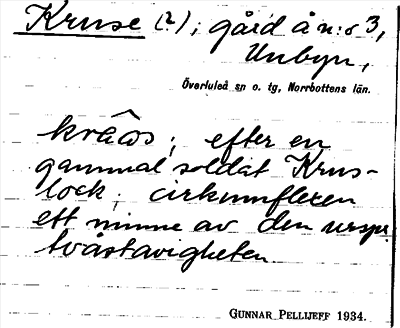 Kruse (?), i gård å n:o 3,
Unbyn,
Överluleå sn o. tg, Norrbottens län.
krâws; efter en
gammal soldat Krus-
lock, cirkumflexen
ett minne av den urspr.
tvåstavigheten
GUNNAR PELLIJEFF 1934.